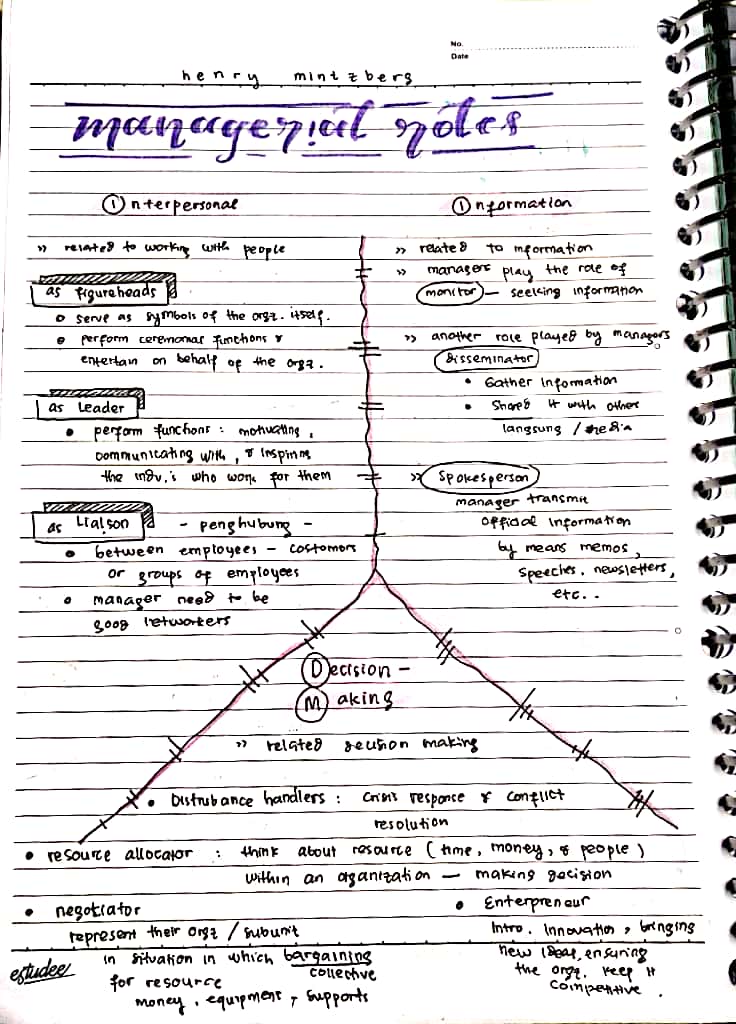 No.
Date
henry mintzberg
managerial roles
Interpersonal
>> related to working with people
as figureheads
serve as symbols of the orgz. itself.
perform ceremonial functions &
entertain on behalf of the orgz.
as Leader
• perform functions : motivating,
communicating with, & inspirins
the indv.'s who work for them
as Liaison - penghubung -
• between employees – costomors
or groups of employees
• manager need to be
good networkers
Information
>> related to information
>> managers play the role of
monitor — seeking information
>> another role played by managers
disseminator
• Gather Information
• Shared it with others
langsung / media
>> Spokesperson
manager transmit
official information
by means memos,
speeches, newsletters,
etc..
Decision -
Making
>> related decision making
• Distrubance handlers : crisis response & conflict
resolution
• resource allocator : think about resource (time, money, & people)
within an organization — making decision
• negotiator
represent their orgz / subunit
in situation in which bargaining
collective
for resource
money, equipment, supports
• Enterpreneur
Intro. Innovation, bringing
new ideas, ensuring
the orgz. keep it
competitive.
estudee